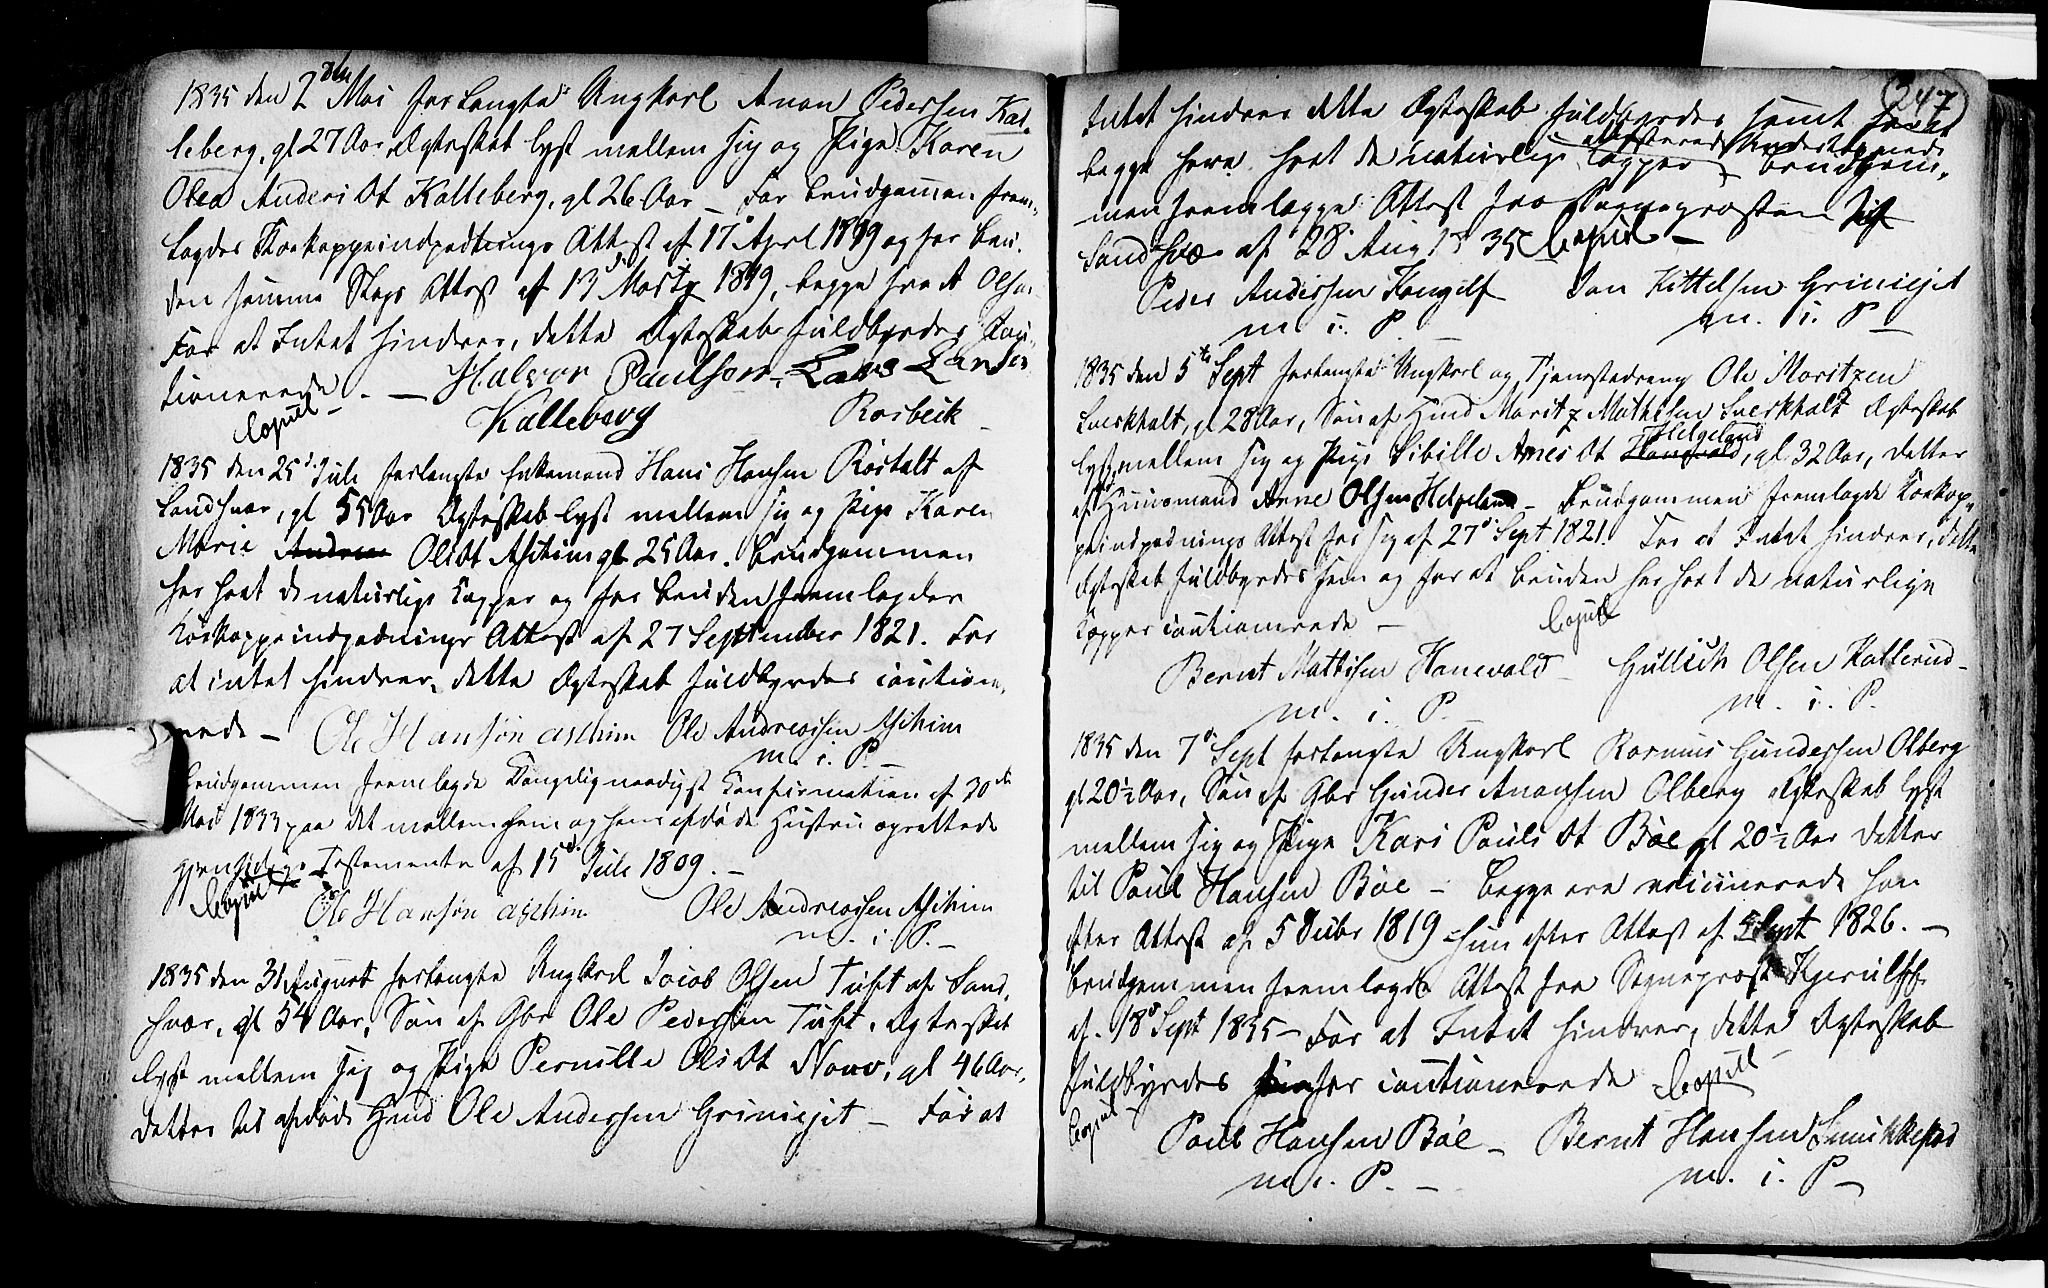 1835 den 2den Mai forlangte Ungkarl Anon Pedersen Kal-
leberg, gl 27 Aar Ægteskab lyst mellem sig og Pige Karen
Olea Anders Dt Kalleberg, gl 26 Aar – For Brudgommen frem-
lagdes Koekoppeindpodtnings Attest af 17 Aprl 1819 og for Bru-
den samme Slags Attest af 13 Martz 1819, begge fra A Olsen
For at Intet hindrer, dette Ægteskabs Fuldbyrdes Cau-
tionerede. – Halvor Paulson, Lars Larsen
Copul – Kalleberg Rosbeck –
1835 den 25d Juli forlangte Enkemand Hans Hansen Rostalt af
Sandsvær, gl 55 Aar Ægteskab lyst mellem sig og Pige Karen
Marie Olsdt Aschim gl 25 Aar. Brudgommen
har havt de naturlige Kopper og for Bruden fremlagdes
Koekoppeindpodnings Attest af 27 September 1821. For
at intet hindrer, dette Ægteskab Fuldbyrdes cautione-
rede – Ole Hansøn aschim Ole Andreassen Aschim
m. i. P. –
Brudgommen fremlagde Kongelig naadigst Confirmation af 30de
Mai 1833 paa det mellem ham og hans afdøde Hustru oprettede
gjensidige Testamente af 15d Juli 1809. –
Copul Ole Hansøn aschim Ole Andreassen Aschim
m. i. P. –
1835 den 31 August forlangte Ungkarl Jacob Olsen Tuft af Sand-
svær, gl 54 Aar, Søn af Gbr Ole Pedersen Tuft, Ægteskab
lyst mellem sig og Pige Pernille Ols Dt, gl 46 Aar,
Datter til afdøde Hmd Ole Andersen Grinsejet – For at
247
Intet hindrer dette Ægteskab Fuldbyrdes samt
begge have havt de naturlige Kopper attesterede Undertegnede Brudgom-
men fremlagde Attest fra Sogneprosten
Sandsvær af 28 Aug 1835 Copul –
Peder Andersen Jan Kittelsen Grinsejet
m. i. P. m. i. P –
1835 den 5te Sept forlangte Ungkarl og Tjenestedreng Ole Moritzen
Sverkholt, gl 28 Aar, Søn af Hmd Moritz Mathisen Sverkholt Ægteskab
lyst mellem sig og Pige Sibille Arnes Dt Helgeland, gl 32 Aar, Datter
af Huusmand Arne Olsen Helgeland – Brudgommen fremlagde Koekop-
peindpodnings Attest for sig af 27d Sept 1821. For at Intet hindrer, dette
Ægteskab Fuldbyrdes sam og for at Bruden har havt de naturlige
Kopper cautionerede – Copul
Bernt Mathisen Hanevold – Gullich Olsen Kallerud –
m. i. P. m. i. P.
1835 den 7d Sept forlangte Ungkarl Rasmus Gundersen Olberg
gl 20½ Aar, Søn af Gbr Gunder Anonsen Olberg Ægteskab lyst
mellem sig og Pige Kari Pouls Dt Bøe gl 20½ Aar Datter
til Poul Hansen Bøe – Begge ere vaccinerede han
efter Attest af 5 Octbr 1819 – hun efter Attest af Sept 1826. –
Brudgommen fremlagde Attest fra Sogneprost Kjerulff
af 18d Sept 1835 – For at Intet hindrer, dette Ægteskab
Fuldbyrdes cautionerede Copul –
Copul Poul Hansen Bøe – Bernt Hansen
m. i. P. – m. i. P –